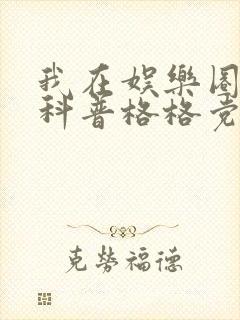 我在娛樂圈
科普格格党
克勞福德